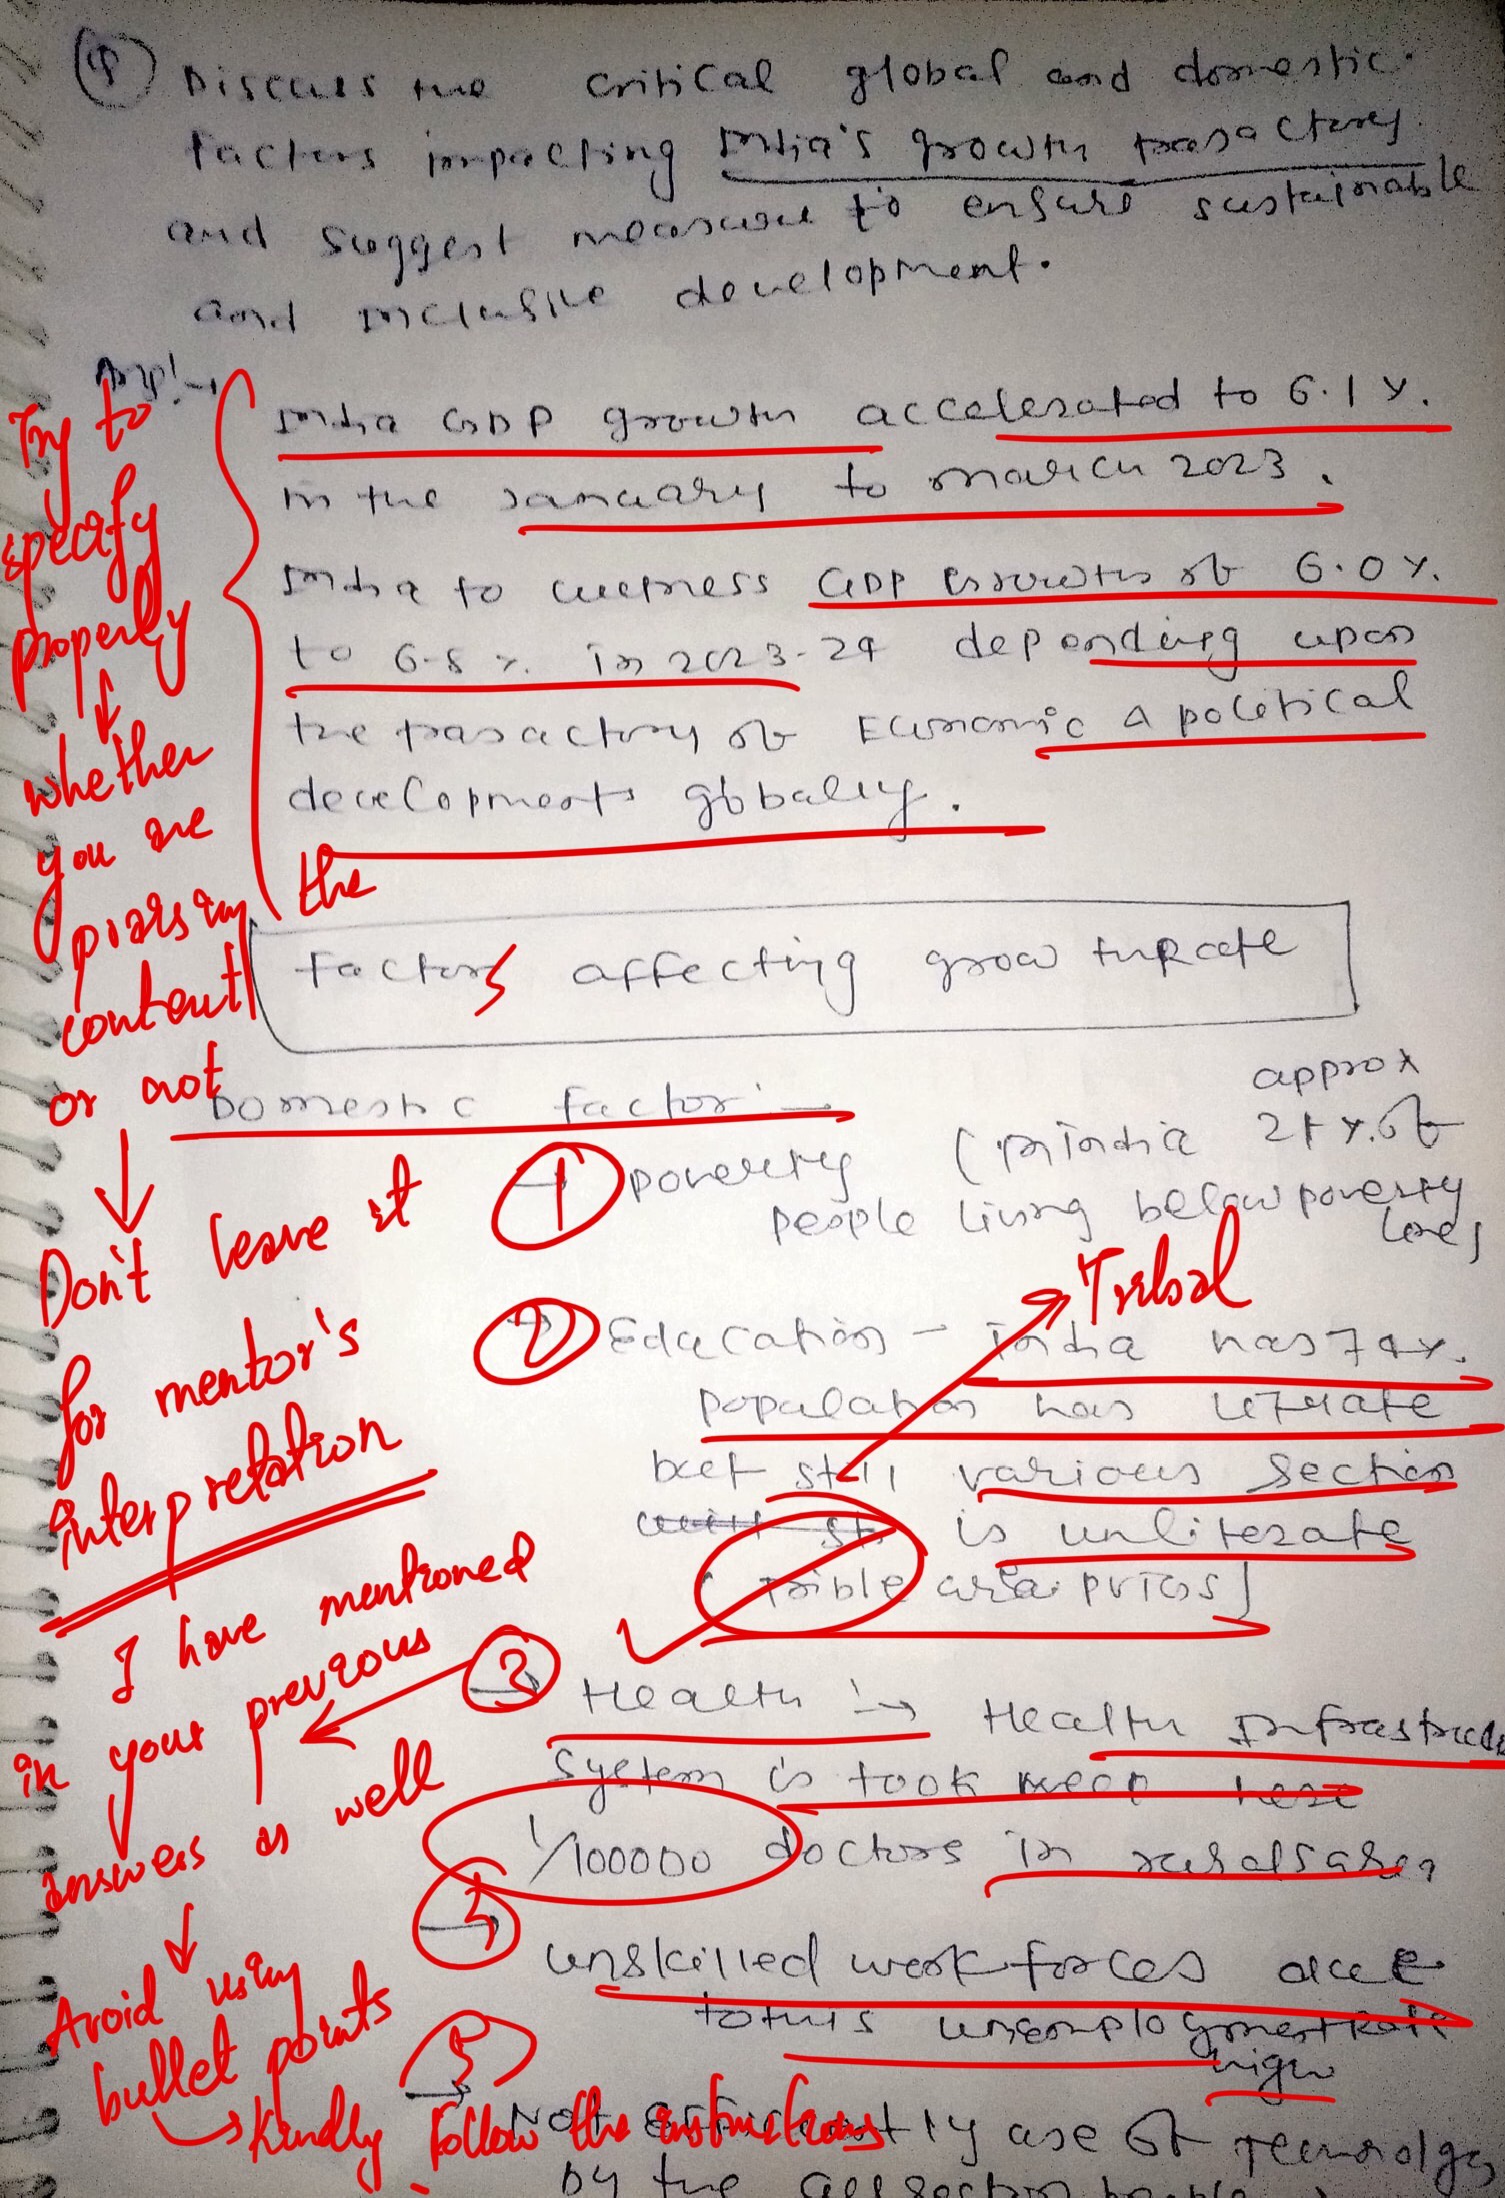 Discuss the critical global and domestic
factors impacting India's growth trasactory
and suggest measure to ensure sustainable
and inclusive development.
Ans! →
India GDP growth accelerated to 6.1 %.
in the January to march 2023.
India to witness GDP Growth of 6.0 %.
to 6.8 %. in 2023-24 depending upon
the trasactory of Economic & political
developments globally.
the
factors affecting growthrate
Domestic factor :-
1 poverty (in india approx 21 %. of
people living below poverty
line)
2 Education - India has 74 %.
population has literate
but still various section
is unliterate
(trible area pvTGs)
Tribal
3 Health :→ Health Infrastruct
system is took weak here
1/100000 doctors in
4 unskilled work forces due
to this unemployment Rate
high
5 Not efficiently use of Technology
by the all section people
Try to
specify
properly
whether
you are
praising
content
or not
Don't leave it
for mentor's
interpretation
I have mentioned
in your previous
answers as well
Avoid using
bullet points
Kindly follow the instructions